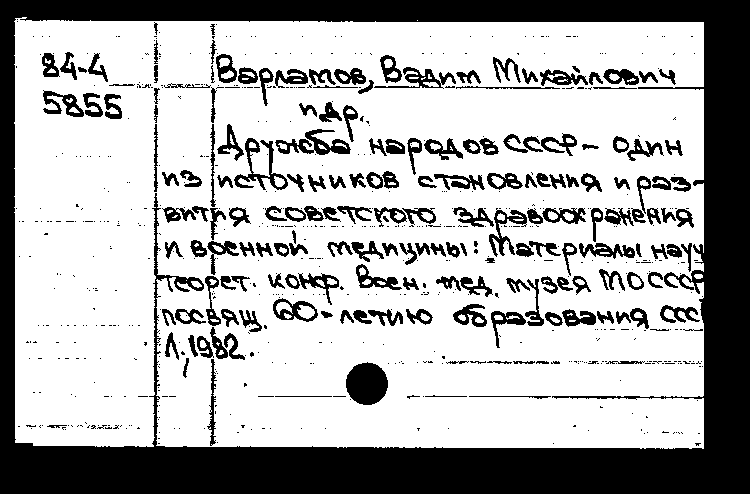 84-4
5855
Варламов, Вадим Михайлович
и др.
Дружба народов СССР - один
из источников становления и раз-
вития советского здравоохранения
и военной медицины: Материалы науч
теорет. конф. Воен. мед. музея МО СССР
посвящ. 60-летию образования ССС
Л., 1982.